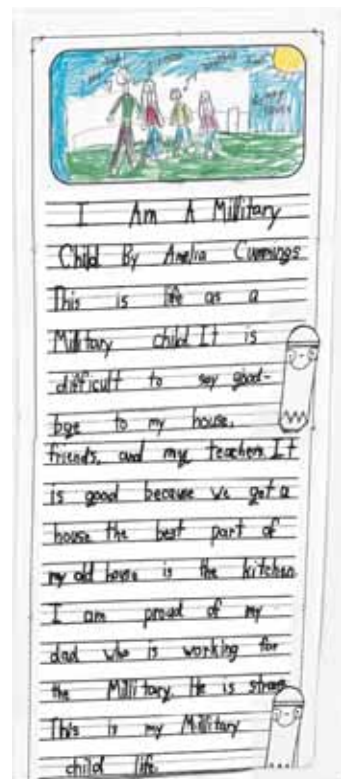 I Am A Millitary
Child By Amelia Cummings
This is life as a
Millitary child It is
difficult to say good-
bye to my house,
friends, and my teachers. It
is good because we get a
house the best part of
my old house is the kitchen
I am proud of my
dad who is working for
the Millitary. He is strong
This is my Millitary
child life.